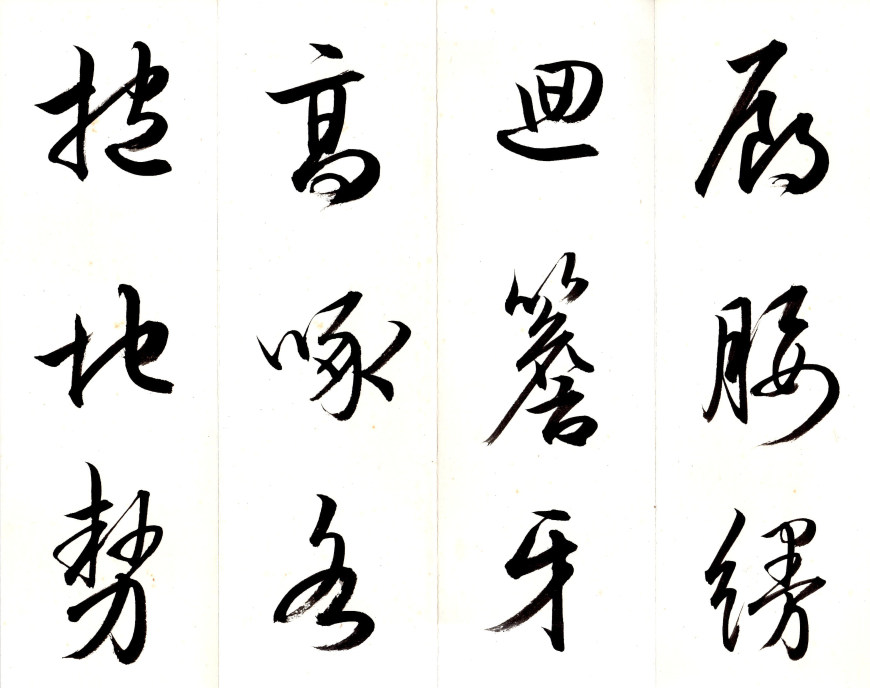 廊腰縵
迴簷牙
高啄各
抱地勢